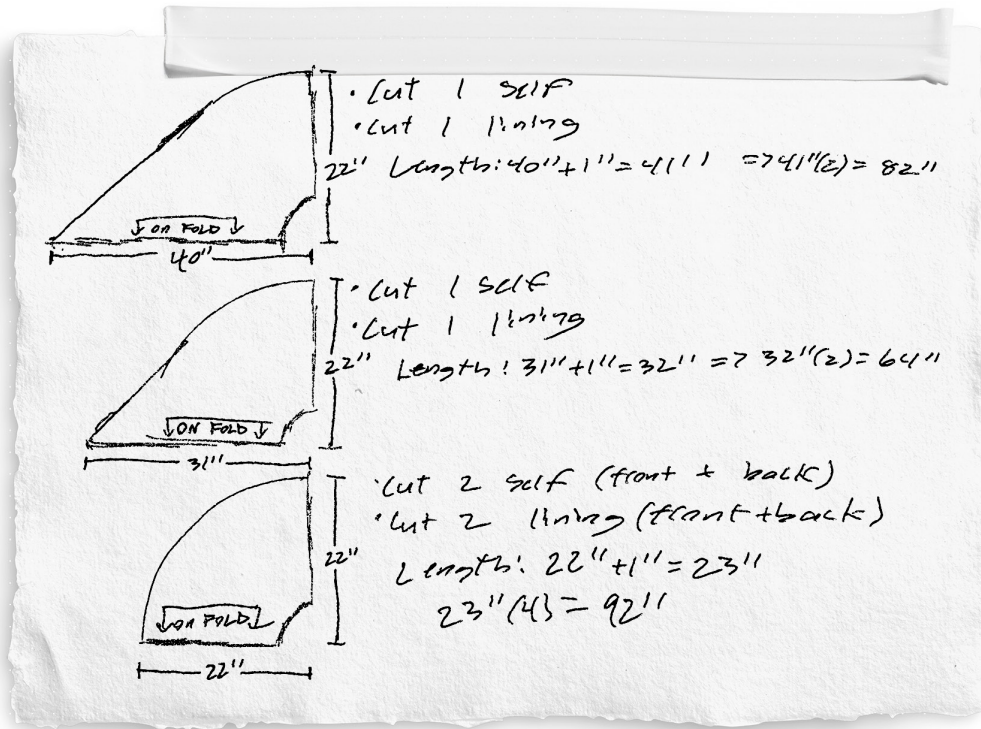 • Cut 1 self
• Cut 1 lining
22" Length: 40"+1"=41" => 41"(2)= 82"
↓ ON FOLD ↓
40"
• Cut 1 self
• Cut 1 lining
22" Length: 31"+1"=32" => 32"(2)= 64"
↓ ON FOLD ↓
31"
• Cut 2 self (front + back)
• Cut 2 lining (front+back)
22" Length: 22"+1"=23"
23"(4)= 92"
↓ ON FOLD ↓
22"